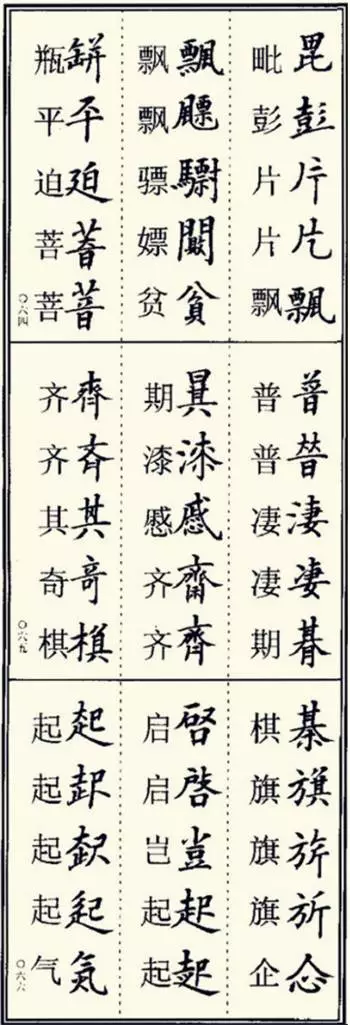 毘彭片片飄
毗彭片片飘
飄貧
飘飘骠嫖贫
缾平廹菩
瓶平迫菩菩
〇六四
普暜淒凄朞
普普凄凄期
慼齊
期漆慼齐齐
齊斉其竒
齐齐其奇棋
〇六五
棊旗旂
棋旗旗旗企
啓豈起起
启启岂起起
起起氣
起起起起气
〇六六